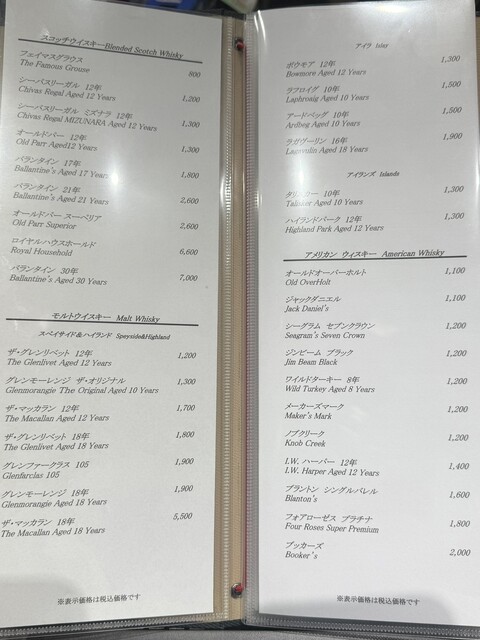 スコッチウイスキーBlended Scotch Whisky
フェイマスグラウス
The Famous Grouse 800
シーバスリーガル 12年
Chivas Regal Aged 12 Years 1,200
シーバスリーガル ミズナラ 12年
Chivas Regal MIZUNARA Aged 12 Years 1,300
オールドパー 12年
Old Parr Aged12 Years 1,300
バランタイン 17年
Ballantine's Aged 17 Years 1,800
バランタイン 21年
Ballantine's Aged 21 Years 2,600
オールドパー スーペリア
Old Parr Superior 2,600
ロイヤルハウスホールド
Royal Household 6,600
バランタイン 30年
Ballantine's Aged 30 Years 7,000
モルトウイスキー Malt Whisky
スペイサイド&ハイランド Speyside&Highland
ザ・グレンリベット 12年 1,200
The Glenlivet Aged 12 Years
グレンモーレンジ ザ・オリジナル 1,300
Glenmorangie The Original Aged 10 Years
ザ・マッカラン 12年 1,700
The Macallan Aged 12 Years
ザ・グレンリベット 18年 1,800
The Glenlivet Aged 18 Years
グレンファークラス 105 1,900
Glenfarclas 105
グレンモーレンジ 18年 1,900
Glenmorangie Aged 18 Years
ザ・マッカラン 18年 5,500
The Macallan Aged 18 Years
※表示価格は税込価格です
アイラ Isley
ボウモア 12年 1,300
Bowmore Aged 12 Years
ラフロイグ 10年 1,500
Laphroaig Aged 10 Years
アードベッグ 10年 1,500
Ardbeg Aged 10 Years
ラガヴーリン 16年 1,900
Lagavulin Aged 18 Years
アイランズ Islands
タリスカー 10年 1,300
Talisker Aged 10 Years
ハイランドパーク 12年 1,300
Highland Park Aged 12 Years
アメリカン ウィスキー American Whisky
オールドオーバーホルト 1,100
Old OverHolt
ジャックダニエル 1,100
Jack Daniel's
シーグラム セブンクラウン 1,200
Seagram's Seven Crown
ジンビーム ブラック 1,200
Jim Beam Black
ワイルドターキー 8年 1,200
Wild Turkey Aged 8 Years
メーカーズマーク 1,200
Maker's Mark
ノブクリーク 1,200
Knob Creek
I.W. ハーパー 12年 1,400
I.W. Harper Aged 12 Years
ブラントン シングルバレル 1,600
Blanton's
フォアローゼス プラチナ 1,800
Four Roses Super Premium
ブッカーズ 2,000
Booker's
※表示価格は税込価格です